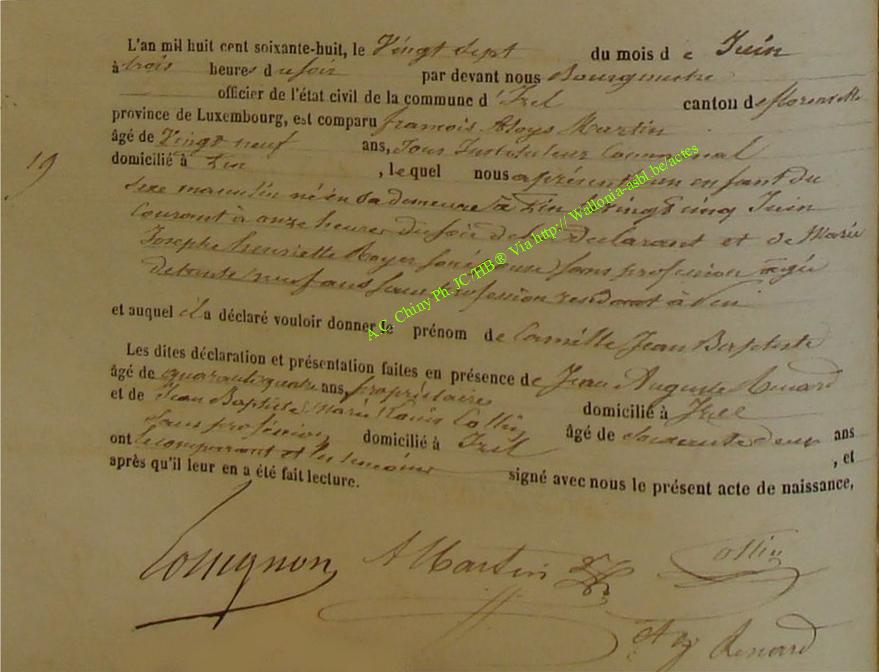 L'an mil huit cent soixante-huit, le Vingt Sept du mois de Juin
à trois heures du soir par devant nous Bourgmestre
officier de l'état civil de la commune d'Izel canton de florenville
province de Luxembourg, est comparu françois Aloys Martin
âgé de Vingt neuf ans, Sous Instituteur Communal
19
domicilié à , lequel nous a présenté un enfant du
sexe masculin né en sa demeure à le vingt cinq Juin
Courant à onze heures du soir de lui déclarant et de Marie
Josephe henriette son épouse sans profession agée
de trente neuf ans sans profession à
et auquel il a déclaré vouloir donner le prénom de Camille Jean Baptiste
Les dites déclaration et présentation faites en présence de Jean Auguste Renard
âgé de quarante quatre ans, propriétaire domicilié à Izel
et de Jean Baptiste Marie Louis Collin âgé de soixante deux ans
sans profession domicilié à Izel , et
ont le comparant et les témoins signé avec nous le présent acte de naissance,
après qu'il leur en a été fait lecture.
A.C. Chiny Ph. JC/HB® Via http:// Wallonia-asbl.be/actes
A Martin Collin
Renard